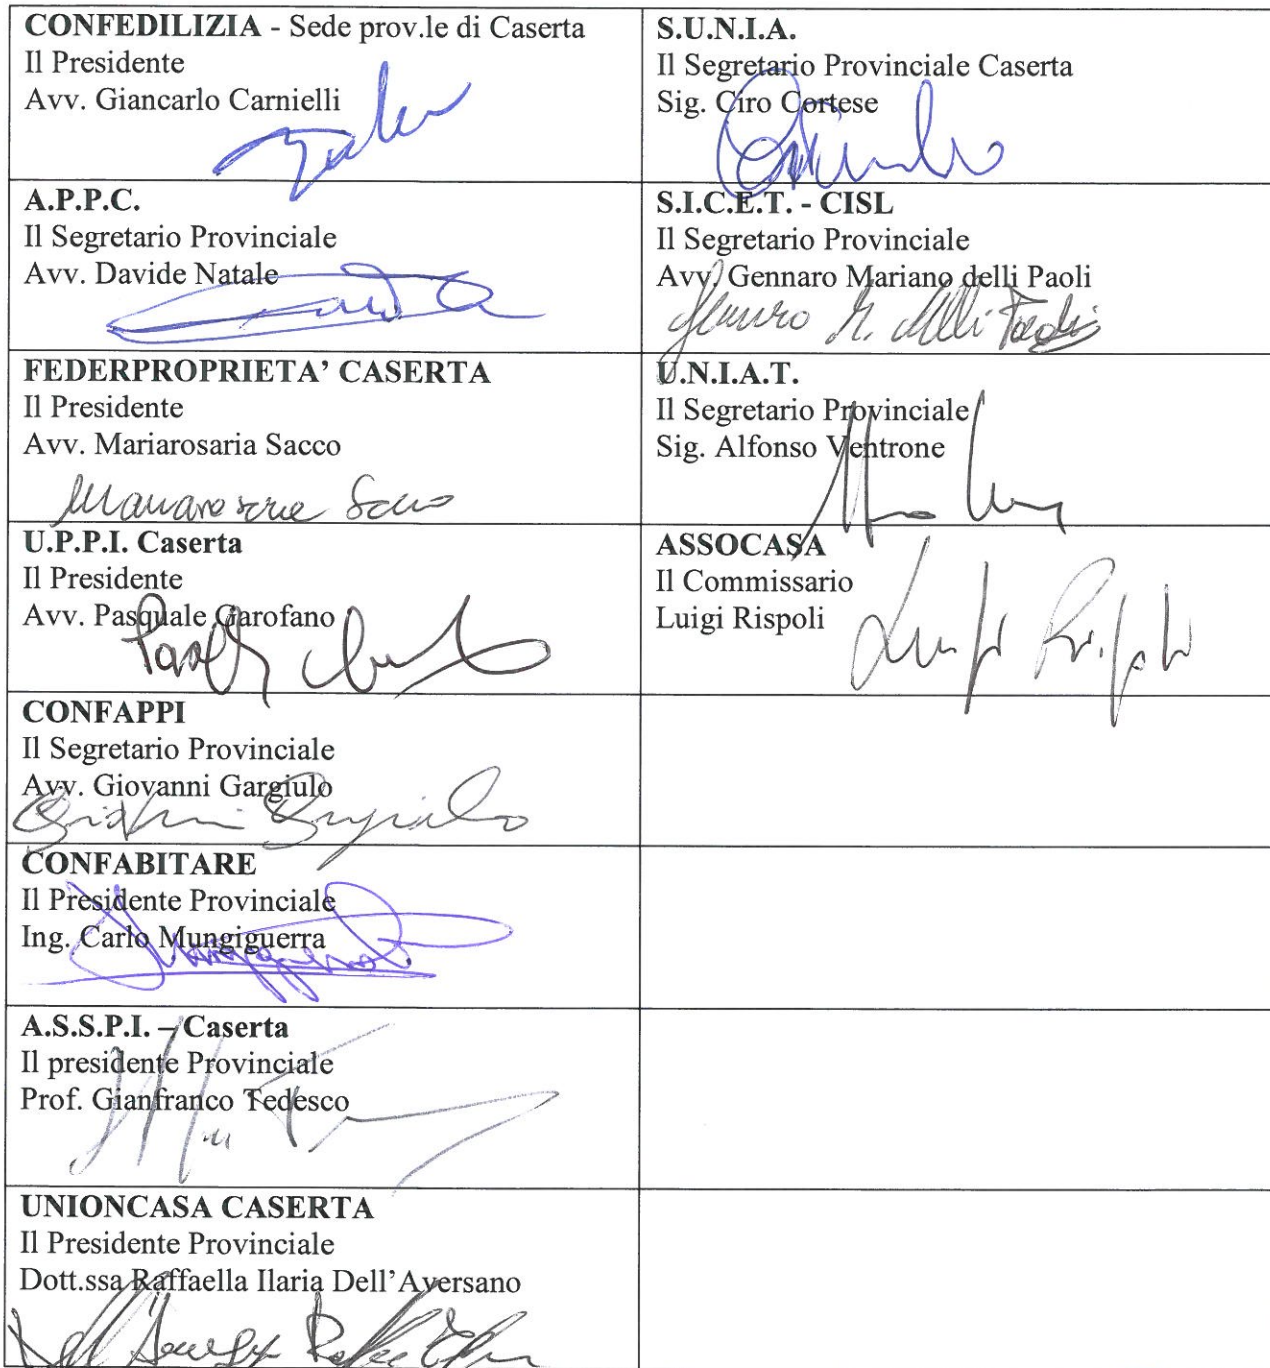 CONFEDILIZIA - Sede prov.le di Caserta
Il Presidente
Avv. Giancarlo Carnielli
S.U.N.I.A.
Il Segretario Provinciale Caserta
Sig. Ciro Cortese
A.P.P.C.
Il Segretario Provinciale
Avv. Davide Natale
S.I.C.E.T. - CISL
Il Segretario Provinciale
Avv. Gennaro Mariano delli Paoli
Gennaro M. delli Paoli
FEDERPROPRIETA’ CASERTA
Il Presidente
Avv. Mariarosaria Sacco
Mariarosaria Sacco
U.N.I.A.T.
Il Segretario Provinciale
Sig. Alfonso Ventrone
U.P.P.I. Caserta
Il Presidente
Avv. Pasquale Garofano
ASSOCASA
Il Commissario
Luigi Rispoli
Luigi Rispoli
CONFAPPI
Il Segretario Provinciale
Avv. Giovanni Gargiulo
Giovanni Gargiulo
CONFABITARE
Il Presidente Provinciale
Ing. Carlo Mungiguerra
A.S.S.P.I. – Caserta
Il presidente Provinciale
Prof. Gianfranco Tedesco
UNIONCASA CASERTA
Il Presidente Provinciale
Dott.ssa Raffaella Ilaria Dell’Aversano